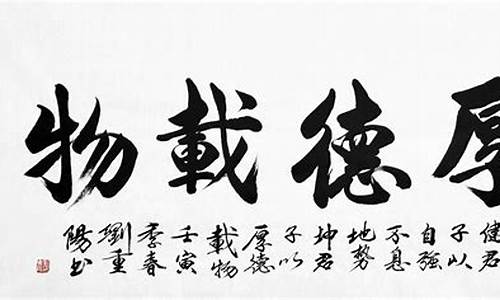 厚德載物
健君
子以
自强
不息
地勢
坤君
子以
厚德
載物
壬寅
季春
劉重
陽书